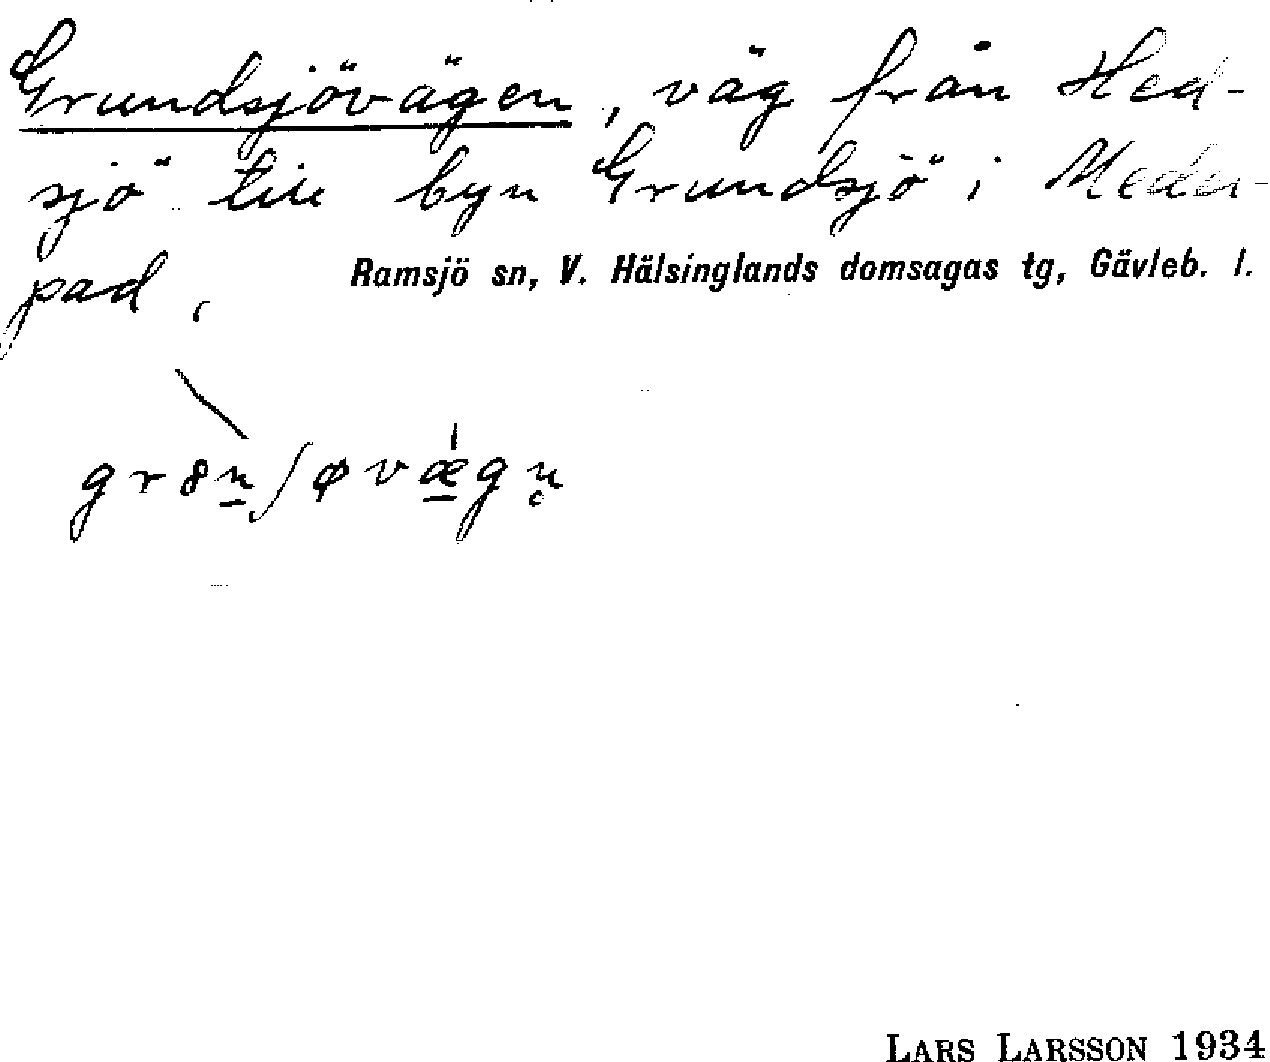 Grundsjövägen, väg från Hed-
sjö till byn Grundsjö i Medel-
pad,
Ramsjö sn, V. Hälsinglands domsagas tg, Gävleb. l.
gr8n̲ʃøvæ̲̍gn̥
LARS LARSSON 1934